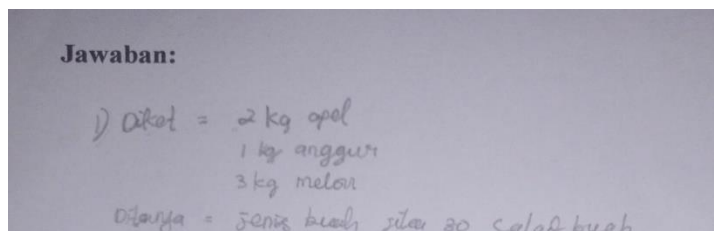 Jawaban:
1) Diket = 2 kg apel
1 kg anggur
3 kg melon
Ditanya = jenis buah jika 30 salad buah